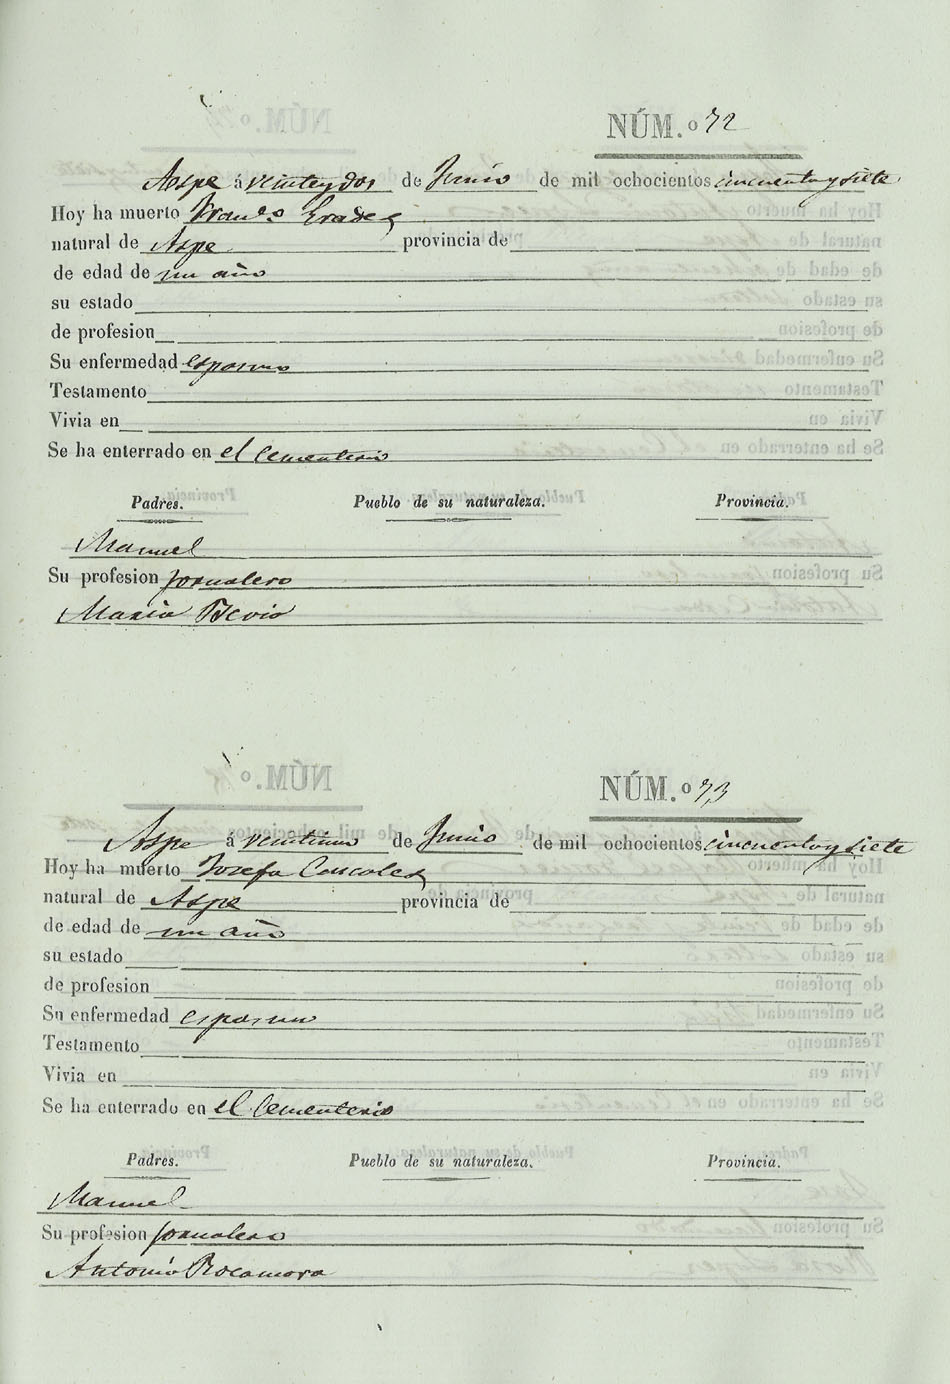 NÚM.º 72
Aspe á veinteydos de Junio de mil ochocientos cincuentaysiete
Hoy ha muerto Franco Erades
natural de Aspe provincia de
de edad de un año
su estado
de profesion
Su enfermedad espasmo
Testamento
Vivia en
Se ha enterrado en el Cementerio
Padres. Pueblo de su naturaleza. Provincia.
Manuel
Su profesion jornalero
Maria
NÚM.º 73
Aspe á de Junio de mil ochocientos cincuentaysiete
Hoy ha muerto Josefa
natural de Aspe provincia de
de edad de un año
su estado
de profesion
Su enfermedad espasmo
Testamento
Vivia en
Se ha enterrado en el Cementerio
Padres. Pueblo de su naturaleza. Provincia.
Manuel
Su profesion jornalero
Antonia Rocamora